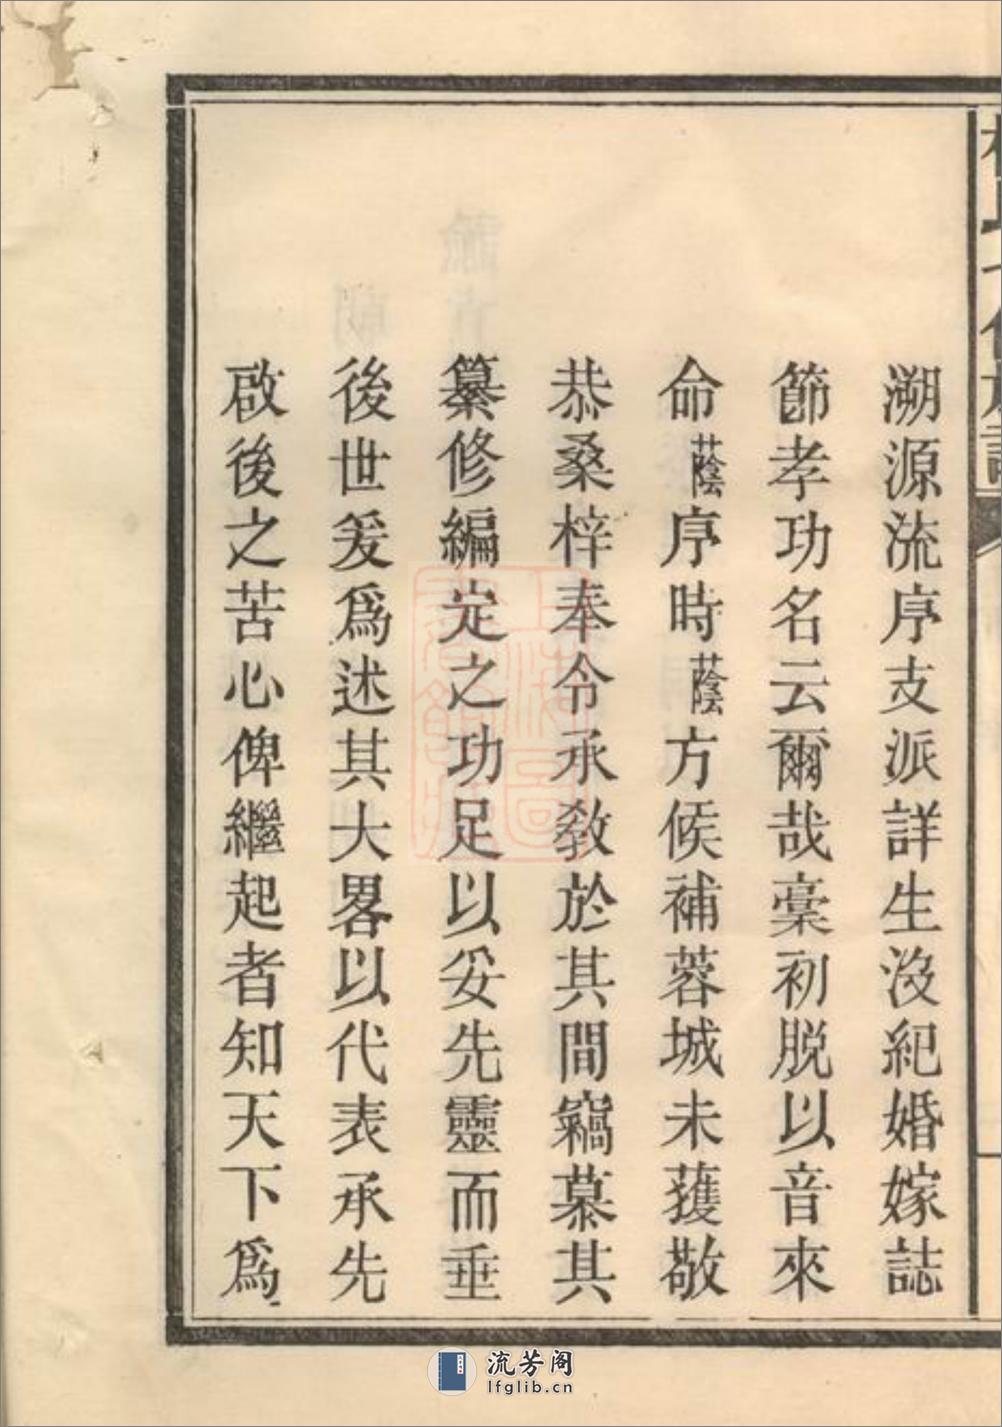 溯源流序支派詳生沒紀婚嫁誌
節孝功名云爾哉稾初脱以音來
命蔭序時蔭方候補蓉城未獲敬
恭桑梓奉令承敎於其間竊慕其
纂修編定之功足以妥先靈而垂
後世爰爲述其大畧以代表承先
啟後之苦心俾繼起者知天下爲
流芳阁
lfglib.cn